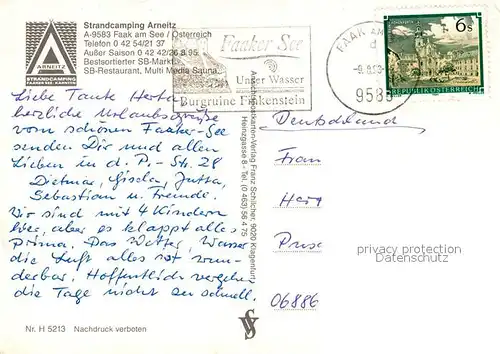 Strandcamping Arneitz
A-9583 Faak am See / Österreich
Telefon 0 42 54/21 37
Außer Saison 0 42 42/26 8 95
Bestsortierter SB-Markt
SB-Restaurant, Multi Media Sauna
ARNEITZ
STRANDCAMPING
Faaker See
Unser Wasser
Burgruine Finkenstein
FAAK AM
d
9583
6s
REPUBLIK ÖSTERREICH
Liebe Tante Herta
herzliche Urlaubsgrüße
vom schönen Faaker-See
senden Dir und allen
Lieben in d. Pi-Str. 28
Dietmar, Gisela, Jutta,
Sebastian u. Freunde.
Wir sind mit 4 Kindern
hier, aber es klappt alles
prima. Das Wetter, Wasser
die Luft alles ist wun-
derbar. Hoffentlich vergehen
die Tage nicht so schnell.
Nr. H 5213 Nachdruck verboten
Ansichtspostkarten-Verlag Franz Schilcher, 9020 Klagenfurt,
Heinzgasse 8 - Tel. (0 463) 56 4 75
Deutschland
Frau
06886
privacy protection
Datenschutz